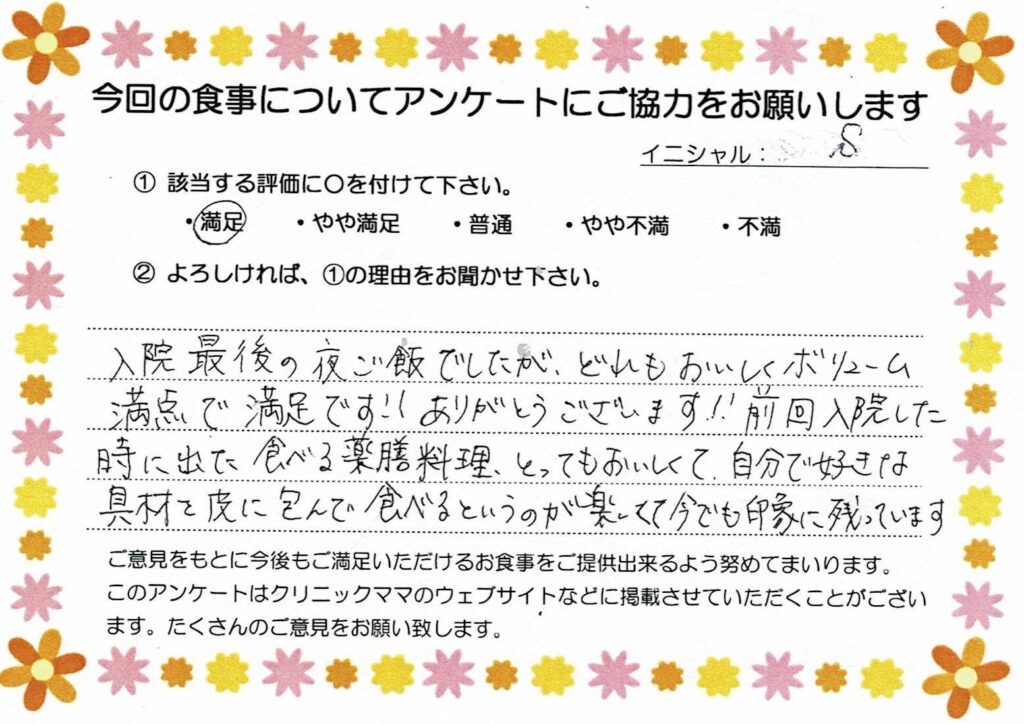 今回の食事についてアンケートにご協力をお願いします
イニシャル： S
① 該当する評価に〇を付けて下さい。
・満足 ・やや満足 ・普通 ・やや不満 ・不満
② よろしければ、①の理由をお聞かせ下さい。
入院最後の夜ご飯でしたが、どれもおいしくボリューム
満点で満足です!! ありがとうございます!! 前回入院した
時に出た食べる薬膳料理、とってもおいしくて、自分で好きな
具材を皮に包んで食べるというのが楽しくて今でも印象に残っています
ご意見をもとに今後もご満足いただけるお食事をご提供出来るよう努めてまいります。
このアンケートはクリニックママのウェブサイトなどに掲載させていただくことがござい
ます。たくさんのご意見をお願い致します。